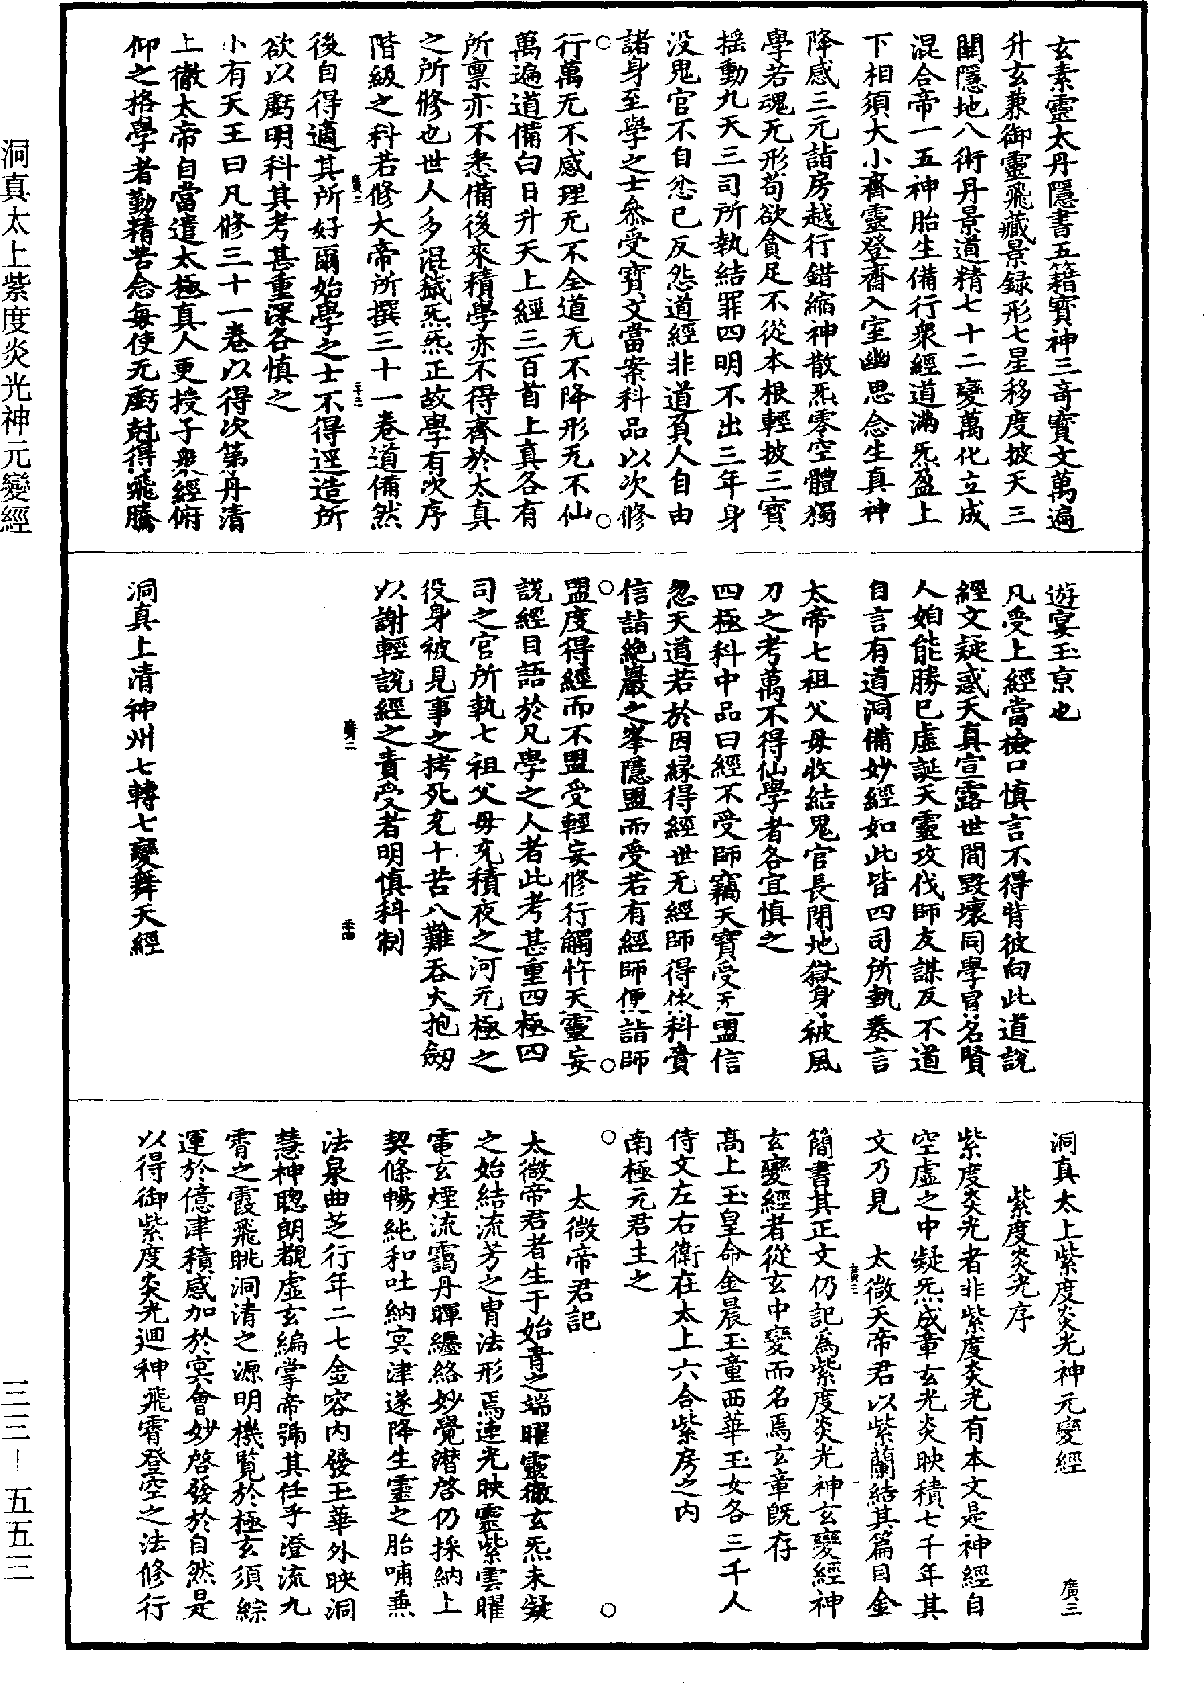 玄素靈太丹隱書五籍寶神三奇寶文萬遍
升玄兼御靈飛藏景録形七星移度披天三
關隱地八術丹景道精七十二變萬化立成
混合帝一五神胎生備行衆經道滿炁盈上
下相須大小齋靈登齋入室幽思念生真神
降感三元詣房越行錯縮神散炁零空體獨
學若魂无形苟欲貪足不從本根輕披三寶
揺動九天三司所執結罪四明不出三年身
没鬼官不自忿已反怨道經非道負人自由
諸身至學之士叅受寶文當案科品以次修
行萬无不感理无不全道无不降形无不仙
萬遍道備白日升天上經三百首上真各有
所禀亦不悉備後來積學亦不得齊於太真
之所修也世人多混籙炁炁正故學有次序
階級之科若修大帝所撰三十一卷道備然
後自得適其所好爾始學之士不得逕造所
欲以虧明科其考甚重深各慎之
小有天王曰凡修三十一卷以得次第丹清
上徹太帝自當遣太極真人更授子衆經俯
仰之格學者勤精苦念每使无虧尅得飛騰
遊宴玉京也
凡受上經當檢口慎言不得背彼向此道説
經文疑惑天真宣露世間毀壞同學冒名賢
人妲能勝已虚誕天靈攻伐師友謀反不道
自言有道洞備妙經如此皆四司所執奏言
太帝七祖父母收結鬼官長閉地獄身被風
刀之考萬不得仙學者各宜慎之
四極科中品曰經不受師竊天寶受无盟信
忽天道若於因縁得經世无經師得依科賫
信詣絶巖之峯隱盟而受若有經師便詣師
盟度得經而不盟受輕妄修行觸忤天靈妄
説經目語於凡學之人者此考甚重四極四
司之官所執七祖父母充積夜之河元極之
役身被見事之拷死充十苦八難吞火抱劒
以謝輕説經之責受者明慎科制
洞真上清神州七轉七變舞天經
洞真太上紫度炎光神元變經
廣三
紫度炎光序
紫度炎光者非紫度炎光有本文是神經自
空虚之中凝炁成章玄光炎映積七千年其
文乃見　太微天帝君以紫蘭結其篇目金
簡書其正文仍記為紫度炎光神玄變經神
玄變經者從玄中變而名焉玄章既存
高上玉皇命金晨玉童西華玉女各三千人
侍文左右衛在太上六合紫房之内
南極元君主之
太微帝君記
太微帝君者生于始青之端曜靈徹玄炁未凝
之始結流芳之胄法形焉連光映靈紫雲曜
電玄煙流靄丹暉纏絡妙覺潜啓仍採納上
契條暢純和吐納㝠津遂降生靈之胎哺兼
法泉曲芝行年二七金容内發玉華外映洞
慧神聰朗覩虚玄編掌帝號其任乎澄流九
霄之霞飛眺洞清之源明機覽於極玄須綜
運於億津積感加於㝠會妙啓發於自然是
以得御紫度炎光迴神飛霄登空之法修行
洞真太上紫度炎光神元變經
三三—五五三